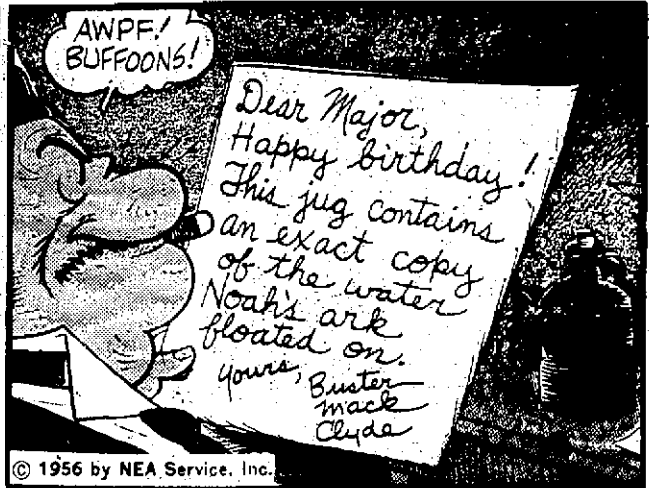 AWPF!
BUFFOONS!
Dear Major,
Happy birthday!
This jug contains
an exact copy
of the water
Noah's ark
floated on.
yours,
Buster
Mack
Clyde
© 1956 by NEA Service, Inc.